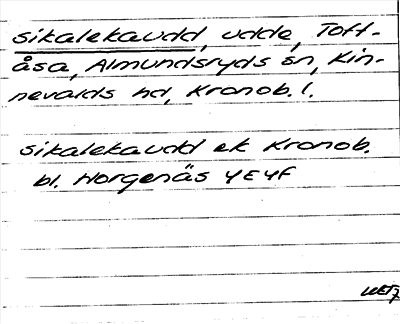 sikalekaudd, udde, Toft-
åsa, Almundsryds sn, Kin-
nevalds hd, Kronob. l.
sikalekaudd ek Kronob.
bl. Horgenäs 4E4f